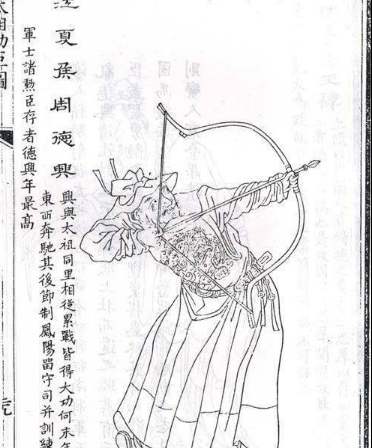 江夏矦周德興
興與太祖同里相從累戰皆得大功何末年
東西奔馳其後節制鳳陽留守司并訓練
軍士諸勲臣存者德興年最高
功臣圖